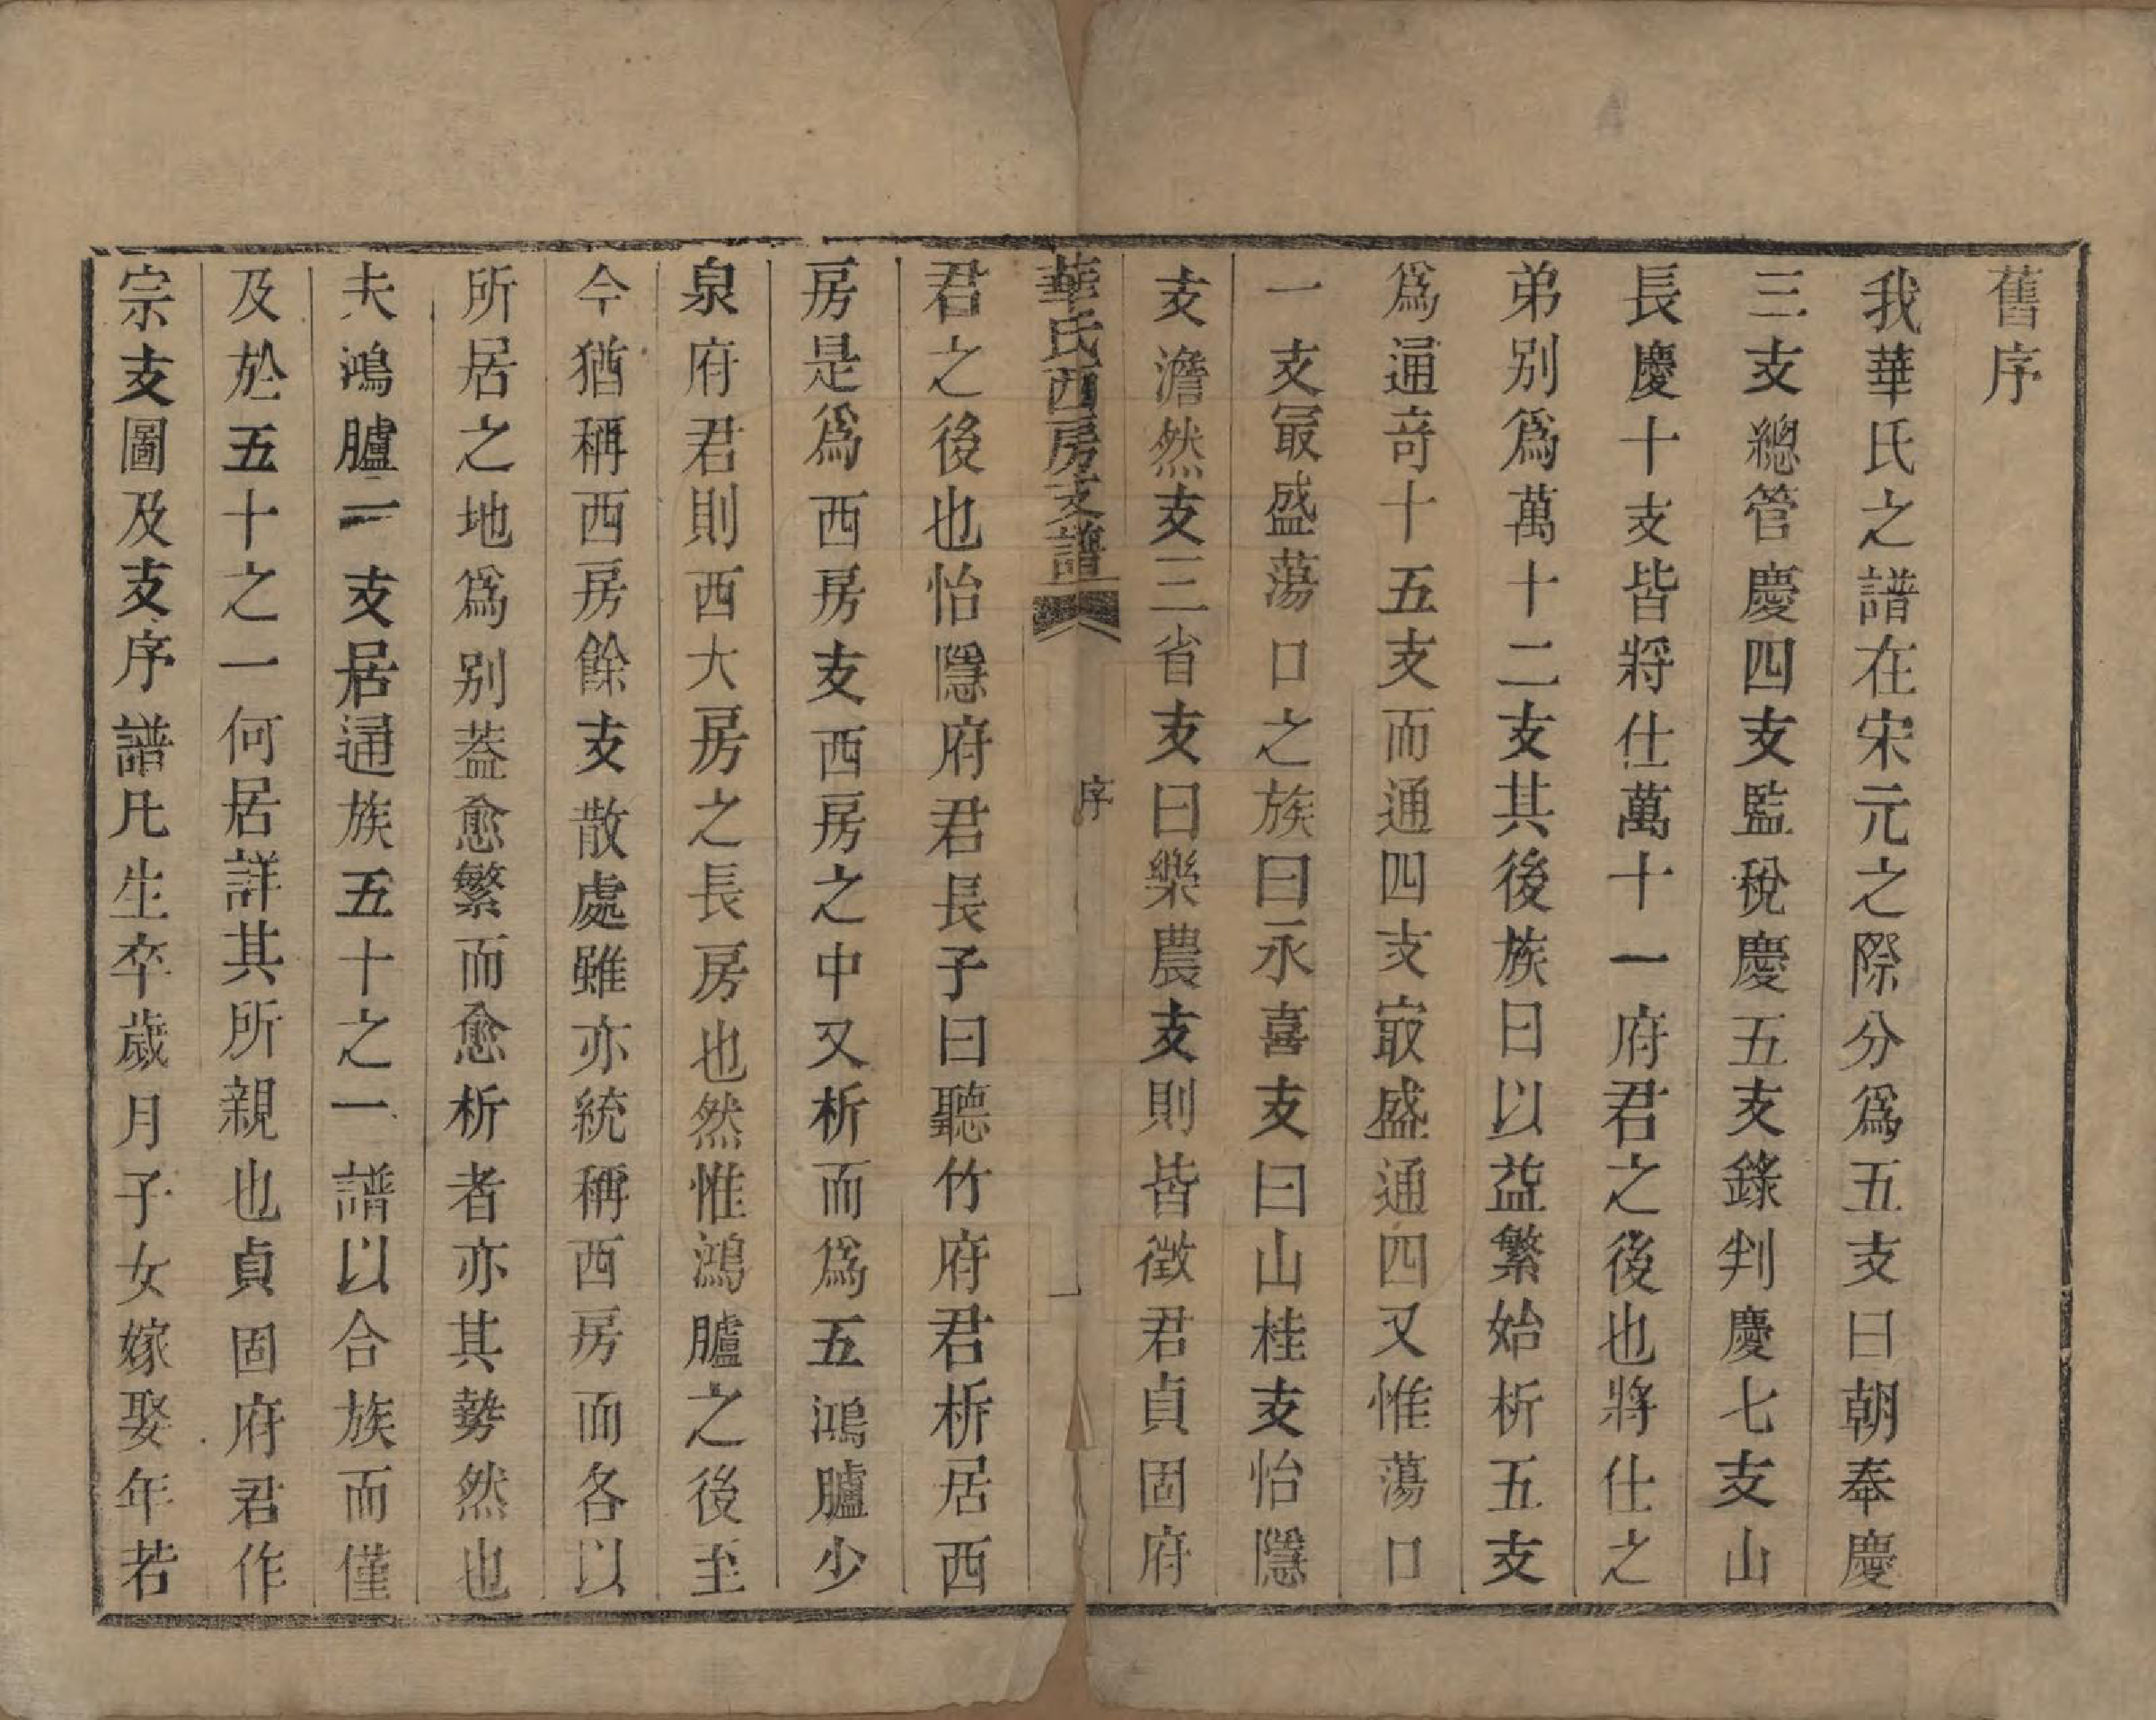 舊序
我華氏之譜在宋元之際分爲五支曰朝奉慶
三支總管慶四支監稅慶五支錄判慶七支山
長慶十支皆將仕萬十一府君之後也將仕之
弟別爲萬十二支其後族日以益繁始析五支
爲通奇十五支而通四支㝡盛通四又惟蕩口
一支㝡盛蕩口之族曰永喜支曰山桂支怡隱
支澹然支三省支曰樂農支則皆徵君貞固府
華氏西房支譜 序 一
君之後也怡隱府君長子曰聽竹府君析居西
房是爲西房支西房之中又析而爲五鴻臚少
泉府君則西大房之長房也然惟鴻臚之後至
今猶稱西房餘支散處雖亦統稱西房而各以
所居之地爲別葢愈繁而愈析者亦其勢然也
夫鴻臚一支居通族五十之一譜以合族而僅
及於五十之一何居詳其所親也貞固府君作
宗支圖及支序譜凡生卒歲月子女嫁娶年若